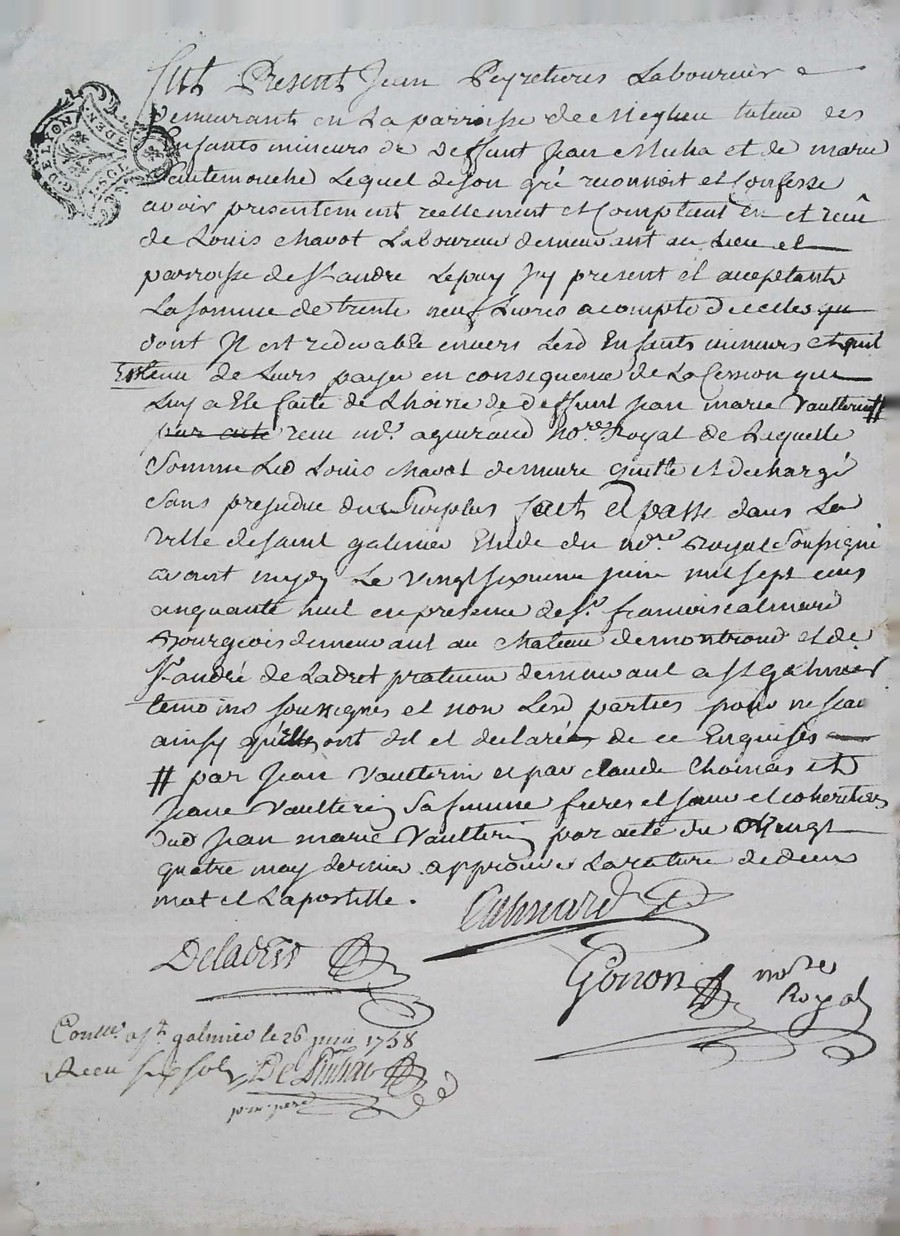 G. DE LYON
Fut Present Jean Peyretieres Laboureur
demeurant en La parroisse de Meylieu tuteur des
Enfants mineurs de Deffunt Jean Micha et de marie
Lequel de son gré reconnoit et Confesse
avoir presentement reellement et Comptant Eu et receu
de Louis chavot Laboureur demeurant au Lieu et
parroisse de st andré Lepuy Jcy present et acceptant
La somme de trente neuf Livres acompte de celles qu
dont Jl est redevable envers Lesd Enfants mineurs et quil
Est tenu de Leurs payer en consequence de La Cession que
Luy a Eté faite de Lhoirie de Deffunt Jean marie Vaulterin #
par acte receu me. aguiraud nore. Royal de Lequelle
Somme Led Louis chavot demeure quitte et dechargé
sans prejudice du Surplus fait et passé dans La
Ville de saint galmier Etude du nore. Royal Soussigné
avant midy Le vingt sixieme juin mil sept cens
cinquante huit en presence de sr. francois calmard
Bourgeois demeurant au chateau de montrond et de
sr andré de Ladret praticien demeurant a st galmier
temoins soussignés et non Lesd parties pour ne scavoir
ainsy qu'elles ont dit et declaré de ce Enquises
# par Jean Vaulterin et par claude Chomas et
Jeane Vaulterin Sa femme freres et soeur et coheritiers
dud Jean marie Vaulterin par acte du vingt
quatre may dernier approuvés La rature de deux
mot et Lapostille.
Calmard
Deladret
Gonon nore
Royal
Contlé. a st. galmier le 26 juin 1758
Receu six sols De